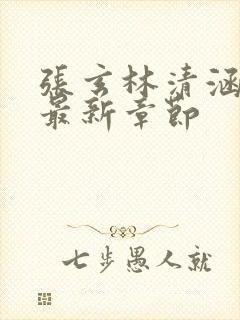 張玄林清涵
最新章節
七步愚人就